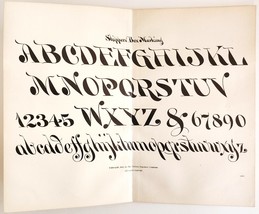 Shippers' Box Marking
ABCDEFGHIJKL
MNOPQRSTUV
12345 WXYZ & 67890
abcddeffghijklmnopqrstuvwxyz